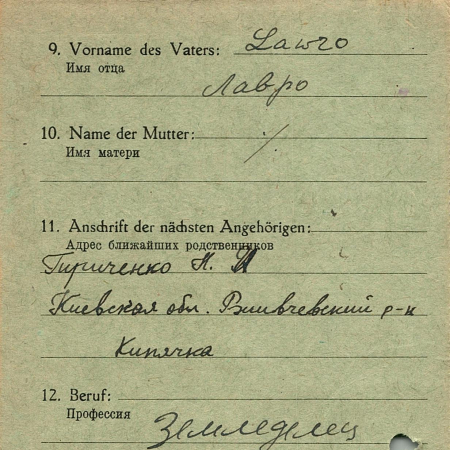 9. Vorname des Vaters: Lawro
Имя отца
Лавро
10. Name der Mutter: ٪
Имя матери
11. Anschrift der nächsten Angehörigen:
Адрес ближайших родственников
Гириченко Н. И
Киевская обл. р-н
Кипячка
12. Beruf:
Профессия
Земледелец